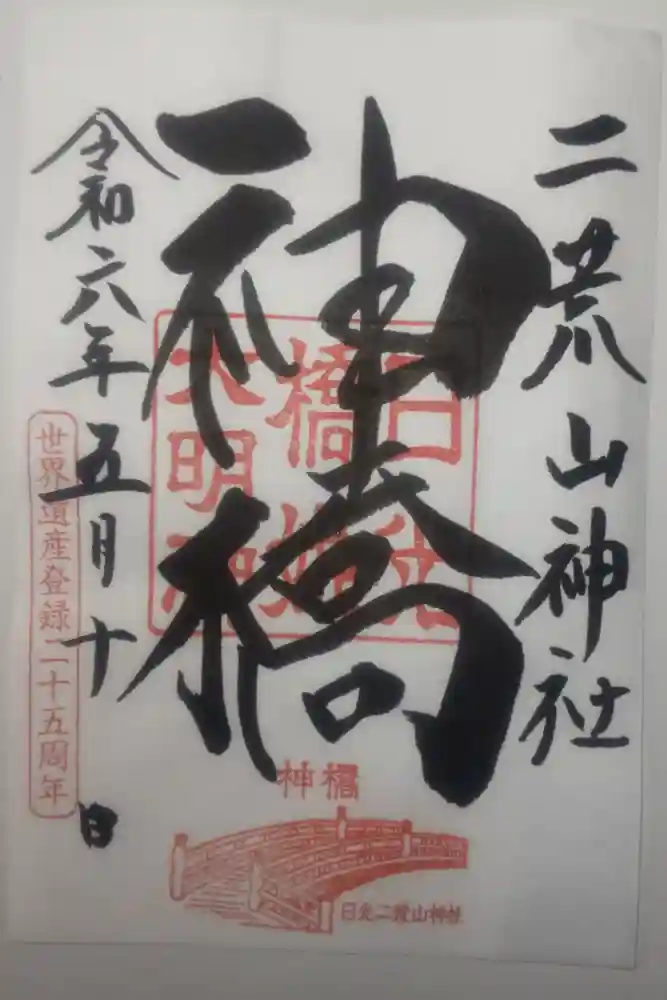 二荒山神社
神橋
日光
橋姫
大明神
令和六年五月十日
世界遺産登録二十五周年
神橋
日光二荒山神社